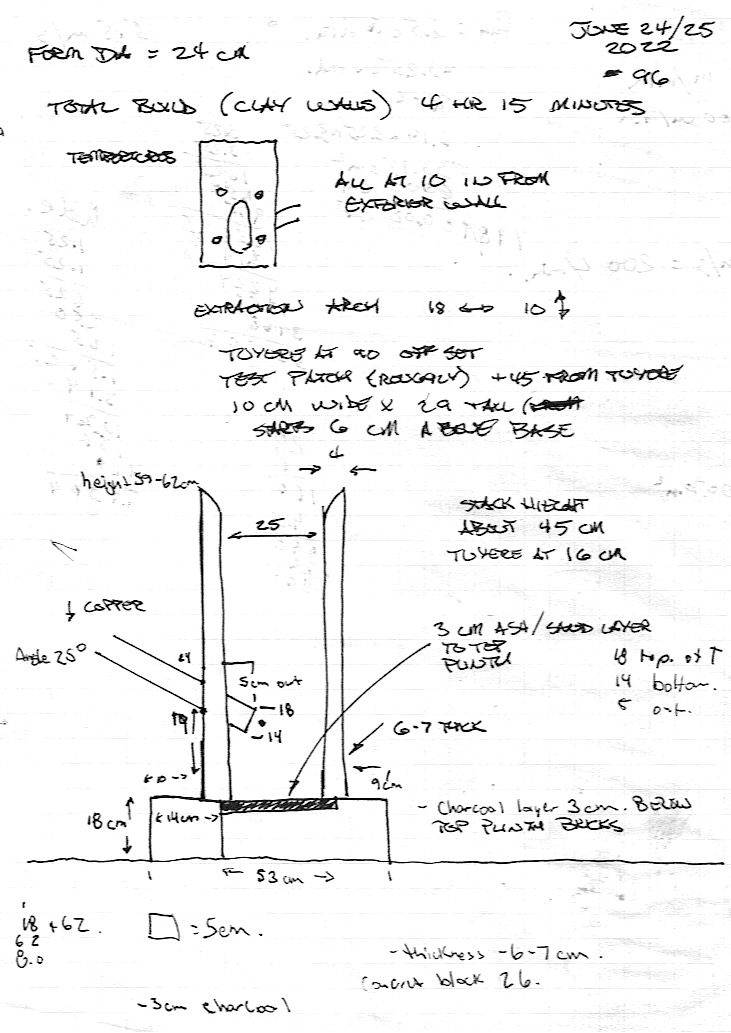 JUNE 24/25
2022
# 96
FORM DIA = 24 CM
TOTAL BUILD (CLAY WALLS) 4 HR 15 MINUTES
ALL AT 10 IN FROM
EXTERIOR WALL
EXTRACTION ARCH 18 ↔ 10 ↕
TUYERE AT 90 OFF SET
TEST PATCH (ROUGHLY) +45 FROM TUYERE
10 CM WIDE X 29 TALL
STARTS 6 CM ABOVE BASE
4
height 59-62cm
25
STACK HIEGHT
ABOUT 45 CM
TUYERE AT 16 CM
↓ COPPER
Angle 25°
24
5cm out
18
14
19
3 CM ASH/SAND LAYER
TO TOP
PLINTH
18 top of T
14 bottom.
5 out.
6-7 THICK
9cm
← 10 →
18cm
← 14cm →
- Charcoal layer 3cm. BELOW
TOP PLINTH BRICKS
← 53cm →
18 + 62.
62
8.0
□ = 5cm.
- thickness - 6-7cm.
Concrt block 26.
- 3cm charcoal